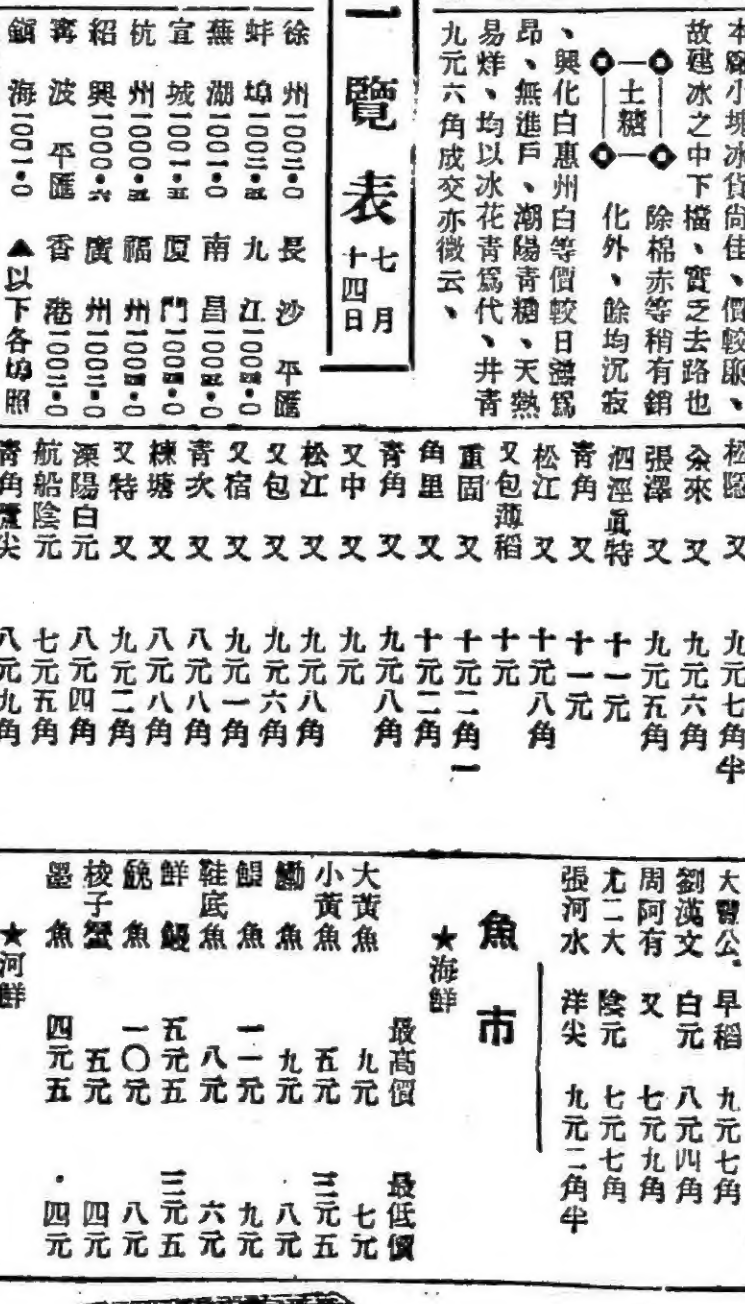 本廠小塊冰貨尚佳、價較廉、
故建冰之中下檔、實乏去路也
土糖
除棉赤等稍有銷
化外、餘均沉寂
、興化白惠州白等價較日灘爲
昂、無進戶、潮陽青糖、天熱
易烊、均以冰花青爲代、井青
九元六角成交亦微云、
一覽表 七月十四日
徐州 一〇〇三・〇 長沙 平匯
蚌埠 九江
蕪湖 一〇〇一・〇 南昌
宣城 廈門
杭州 福州
紹興 一〇〇〇・六 廣州 一〇〇二・〇
寗波 平匯 香港 一〇〇二・〇
鎭海 一〇〇一・〇 ▲以下各埠照
又 九元七角半
籴來 又 九元六角
張澤 又 九元五角
泗涇眞特 十一元
青角 又 十一元
松江 又 十元八角
又包薄稻 十元
重固 又 十元二角一
角里 又 十元二角
青角 又 九元八角
又中 又 九元
松江 又 九元八角
又包 又 九元六角
又宿 又 九元一角
青次 又 八元八角
練塘 又 八元八角
又特 又 九元二角
溧陽白元 八元四角
航船陰元 七元五角
青角蘆尖 八元九角
大豐公 早稻 九元七角
劉漢文 白元 八元四角
周阿有 又 七元九角
尤二大 陰元 七元七角
張河水 洋尖 九元二角半
魚市
★海鮮
最高價 最低價
大黃魚 九元 七元
小黃魚 五元 三元五
鰳魚 九元 八元
魚 一一元 九元
鞋底魚 八元 六元
鮮鰻 五元五 三元五
鮸魚 一〇元 八元
梭子蟹 五元 四元
墨魚 四元五 四元
★河鮮